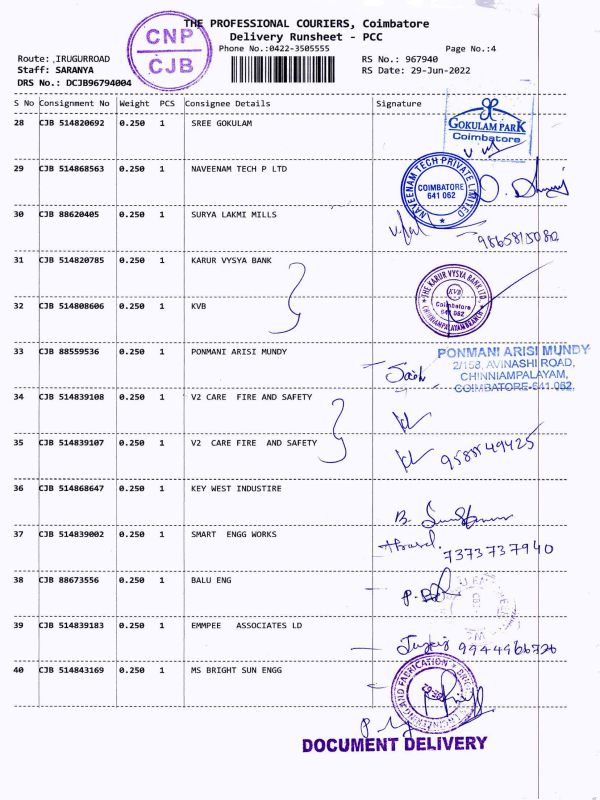 THE PROFESSIONAL COURIERS, Coimbatore
Delivery Runsheet - PCC
CNP
CJB
Phone No.:0422-3505555
Page No.:4
Route: ,IRUGURROAD
RS No.: 967940
Staff: SARANYA
RS Date: 29-Jun-2022
DRS No.: DCJB96794004
S No Consignment No Weight PCS Consignee Details Signature
28 CJB 514820692 0.250 1 SREE GOKULAM
GOKULAM PARK
Coimbatore
29 CJB 514868563 0.250 1 NAVEENAM TECH P LTD
NAVEENAM TECH PRIVATE LIMITED
COIMBATORE
641 062
30 CJB 88620405 0.250 1 SURYA LAKMI MILLS
9865815080
31 CJB 514820785 0.250 1 KARUR VYSYA BANK
THE KARUR VYSYA BANK LTD.
KVB
Coimbatore
641 062
CHINNIAMPALAYAM BRANCH
32 CJB 514808606 0.250 1 KVB
33 CJB 88559536 0.250 1 PONMANI ARISI MUNDY
PONMANI ARISI MUNDY
2/158, AVINASHI ROAD,
CHINNIAMPALAYAM,
COIMBATORE-641 062.
34 CJB 514839108 0.250 1 V2 CARE FIRE AND SAFETY
35 CJB 514839107 0.250 1 V2 CARE FIRE AND SAFETY
36 CJB 514868647 0.250 1 KEY WEST INDUSTIRE
37 CJB 514839002 0.250 1 SMART ENGG WORKS
7373737940
38 CJB 88673556 0.250 1 BALU ENG
39 CJB 514839183 0.250 1 EMMPEE ASSOCIATES LD
40 CJB 514843169 0.250 1 MS BRIGHT SUN ENGG
DOCUMENT DELIVERY